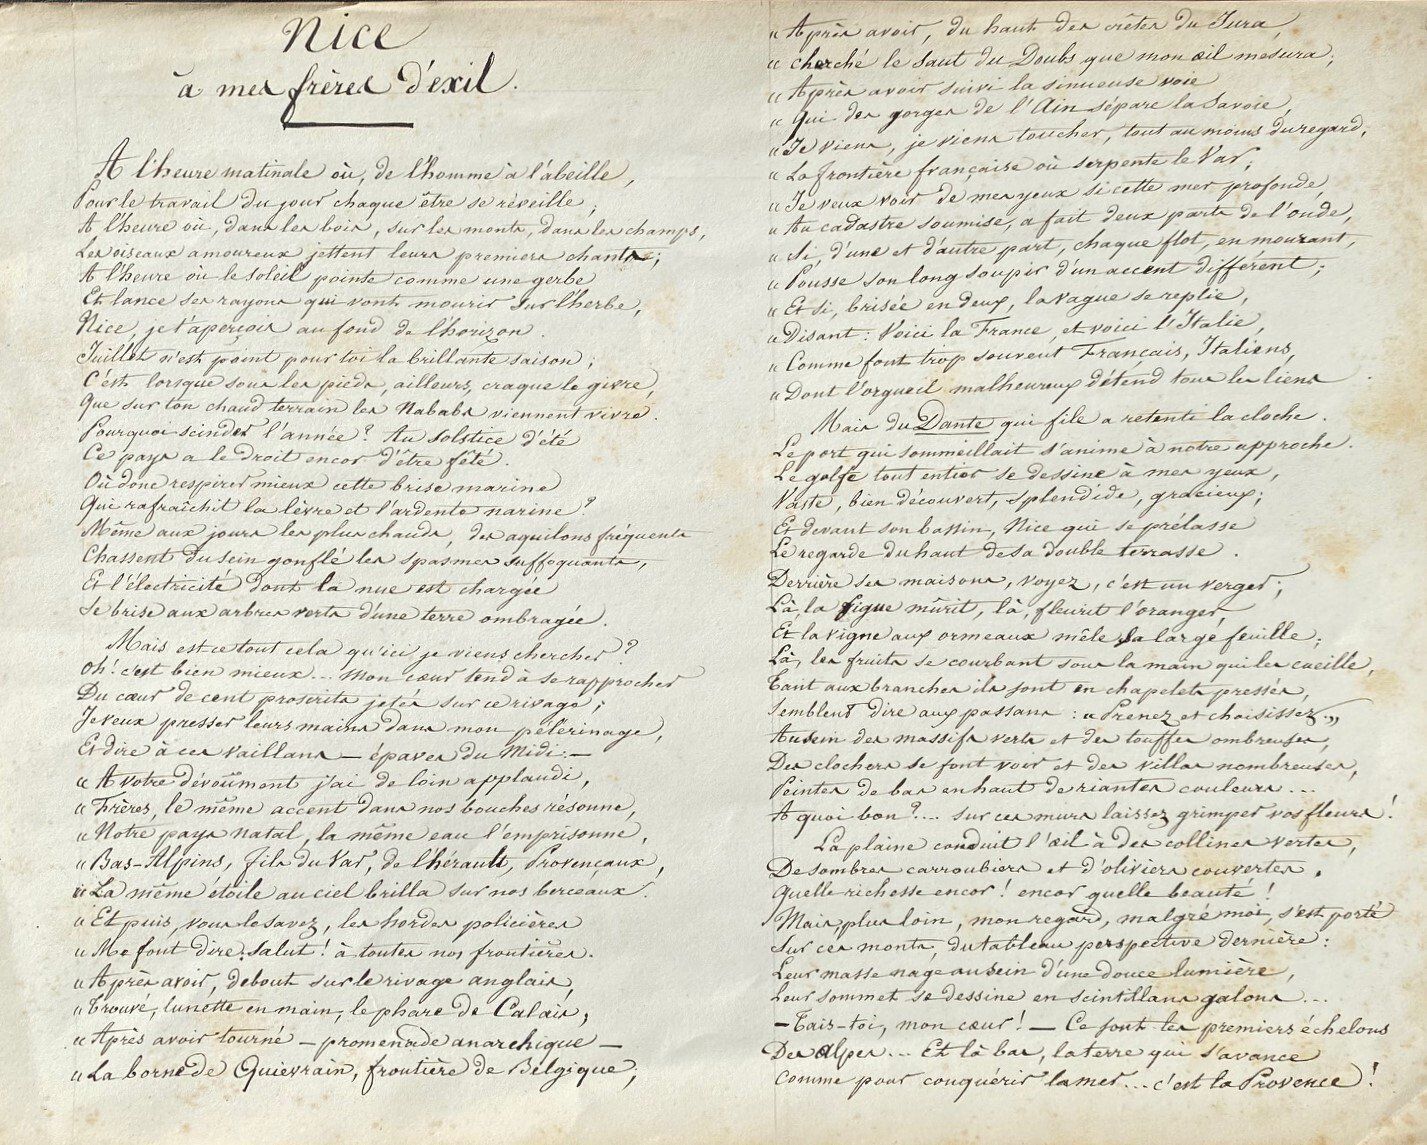 Nice
à mes frères d'exil.
A l'heure matinale où, de l'homme à l'abeille,
Pour le travail du jour chaque être se réveille;
A l'heure où, dans les bois, sur les monts, dans les champs,
Les oiseaux amoureux jettent leurs premiers chants;
A l'heure où le soleil pointe comme une gerbe
Et lance ses rayons qui vont mourir sur l'herbe,
Nice, je t'aperçois au fond de l'horizon.
Juillet n'est point pour toi la brillante saison;
C'est lorsque sous les pieds, ailleurs, craque le givre,
Que sur ton chaud terrain les Nababs viennent vivre.
Pourquoi scinder l'année? Au solstice d'été
Ce pays a le droit encor d'être fêté.
Où donc respirer mieux cette brise marine
Qui rafraîchit la lèvre et l'ardente narine?
Même aux jours les plus chauds, des aquilons fréquents
Chassent du sein gonflé les spasmes suffoquants,
Et l'électricité dont la nue est chargée
Se brise aux arbres verts d'une terre ombragée.
Mais est-ce tout cela qu'ici je viens chercher?
Oh! c'est bien mieux... mon cœur tend à se rapprocher
Du cœur de cent proscrits jetés sur ce rivage;
Je veux presser leurs mains dans mon pélerinage,
Et dire à ces vaillans — épaves du Midi: —
« A votre dévoûment j'ai de loin applaudi,
« Frères, le même accent dans nos bouches résonne,
« Notre pays natal, la même eau l'emprisonne,
« Bas-Alpins, fils du Var, de l'hérault, Provençaux,
« La même étoile au ciel brilla sur nos berceaux.
« Et puis, vous le savez, les hordes policières
« Me font dire: Salut! à toutes nos frontières.
« Après avoir, debout sur le rivage anglais,
« Trouvé, lunette en main, le phare de Calais,
« Après avoir tourné — promenade anarchique —
« La borne de Quievrain, frontière de Belgique;
« Après avoir, du haut des crêtes du Jura,
« Cherché le saut du Doubs que mon œil mesura;
« Après avoir suivi la sinueuse voie
« Qui des gorges de l'Ain sépare la Savoie,
« Je viens, je viens toucher, tout au moins du regard,
« La frontière française où serpente le Var;
« Je veux voir de mes yeux si cette mer profonde,
« Au cadastre soumise, a fait deux parts de l'onde,
« Si, d'une et d'autre part, chaque flot, en mourant,
« Pousse son long soupir d'un accent différent;
« Et si, brisée en deux, la vague se replie,
« Disant: Voici la France, et voici l'Italie,
« Comme font trop souvent Français, Italiens,
« Dont l'orgueil malheureux détend tous les liens
Mais du Dante qui file a retenti la cloche.
Le port qui sommeillait s'anime à notre approche.
Le golfe tout entier se dessine à mes yeux,
Vaste, bien découvert, splendide, gracieux;
Et devant son bassin, Nice qui se prélasse
Le regarde du haut de sa double terrasse.
Derrière ses maisons, voyez, c'est un verger;
Là, la figue mûrit, là, fleurit l'oranger,
Et la vigne aux ormeaux mêle sa large feuille;
Là, les fruits se courbant sous la main qui les cueille,
Tant aux branches ils sont en chapelets pressés,
Semblent dire aux passans: « Prenez et choisissez. »
Au sein des massifs verts et des touffes ombreuses,
Des clochers se font voir et des villas nombreuses,
Peintes de bas en haut de riantes couleurs...
A quoi bon?... Sur ces murs laissez grimper vos fleurs!
La plaine conduit l'œil à des collines vertes,
De sombres carroubiers et d'oliviers couvertes.
Quelle richesse encor! encor quelle beauté!
Mais, plus loin, mon regard, malgré moi, s'est porté
Sur ces monts, du tableau perspective dernière:
Leur masse nage au sein d'une douce lumière,
Leur sommet se dessine en scintillans galons...
— Tais-toi, mon cœur! — Ce sont les premiers échelons
Des Alpes... Et là bas, la terre qui s'avance
Comme pour conquérir la mer... c'est la Provence!